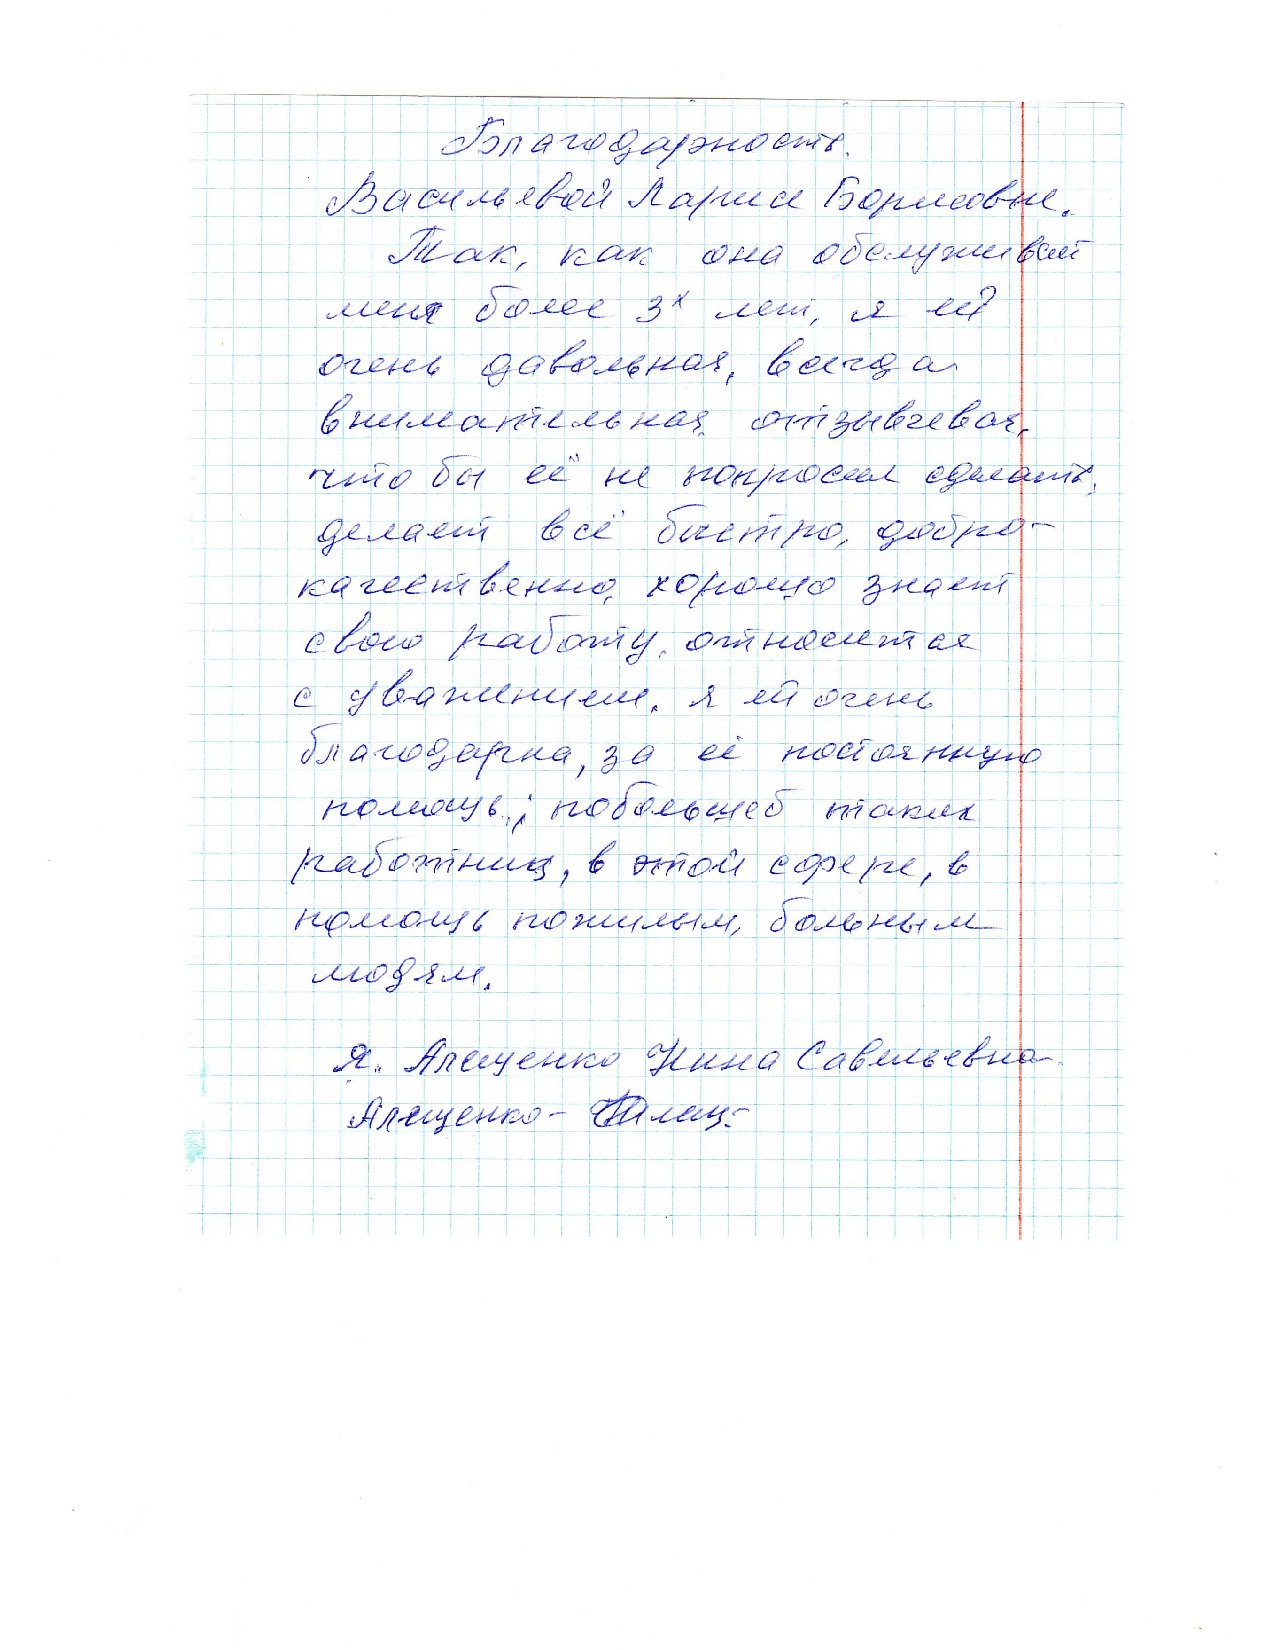 Благодарность.
Васильевой Ларисе Борисовне.
Так, как она обслуживает
меня более 3х лет, я ей
очень давольная, всегда
внимательная, отзывчевая,
что бы её не попросил сделать,
делает всё быстро, добро-
качественно, хорошо знает
свою работу, относится
с уважением. я ей очень
благодарна, за её постоянную
помощь, побольшеб таких
работниц, в этой сфере, в
помощь пожилым, больным
людям.
Я. Алещенко Нина Савельевна.
Алещенко-